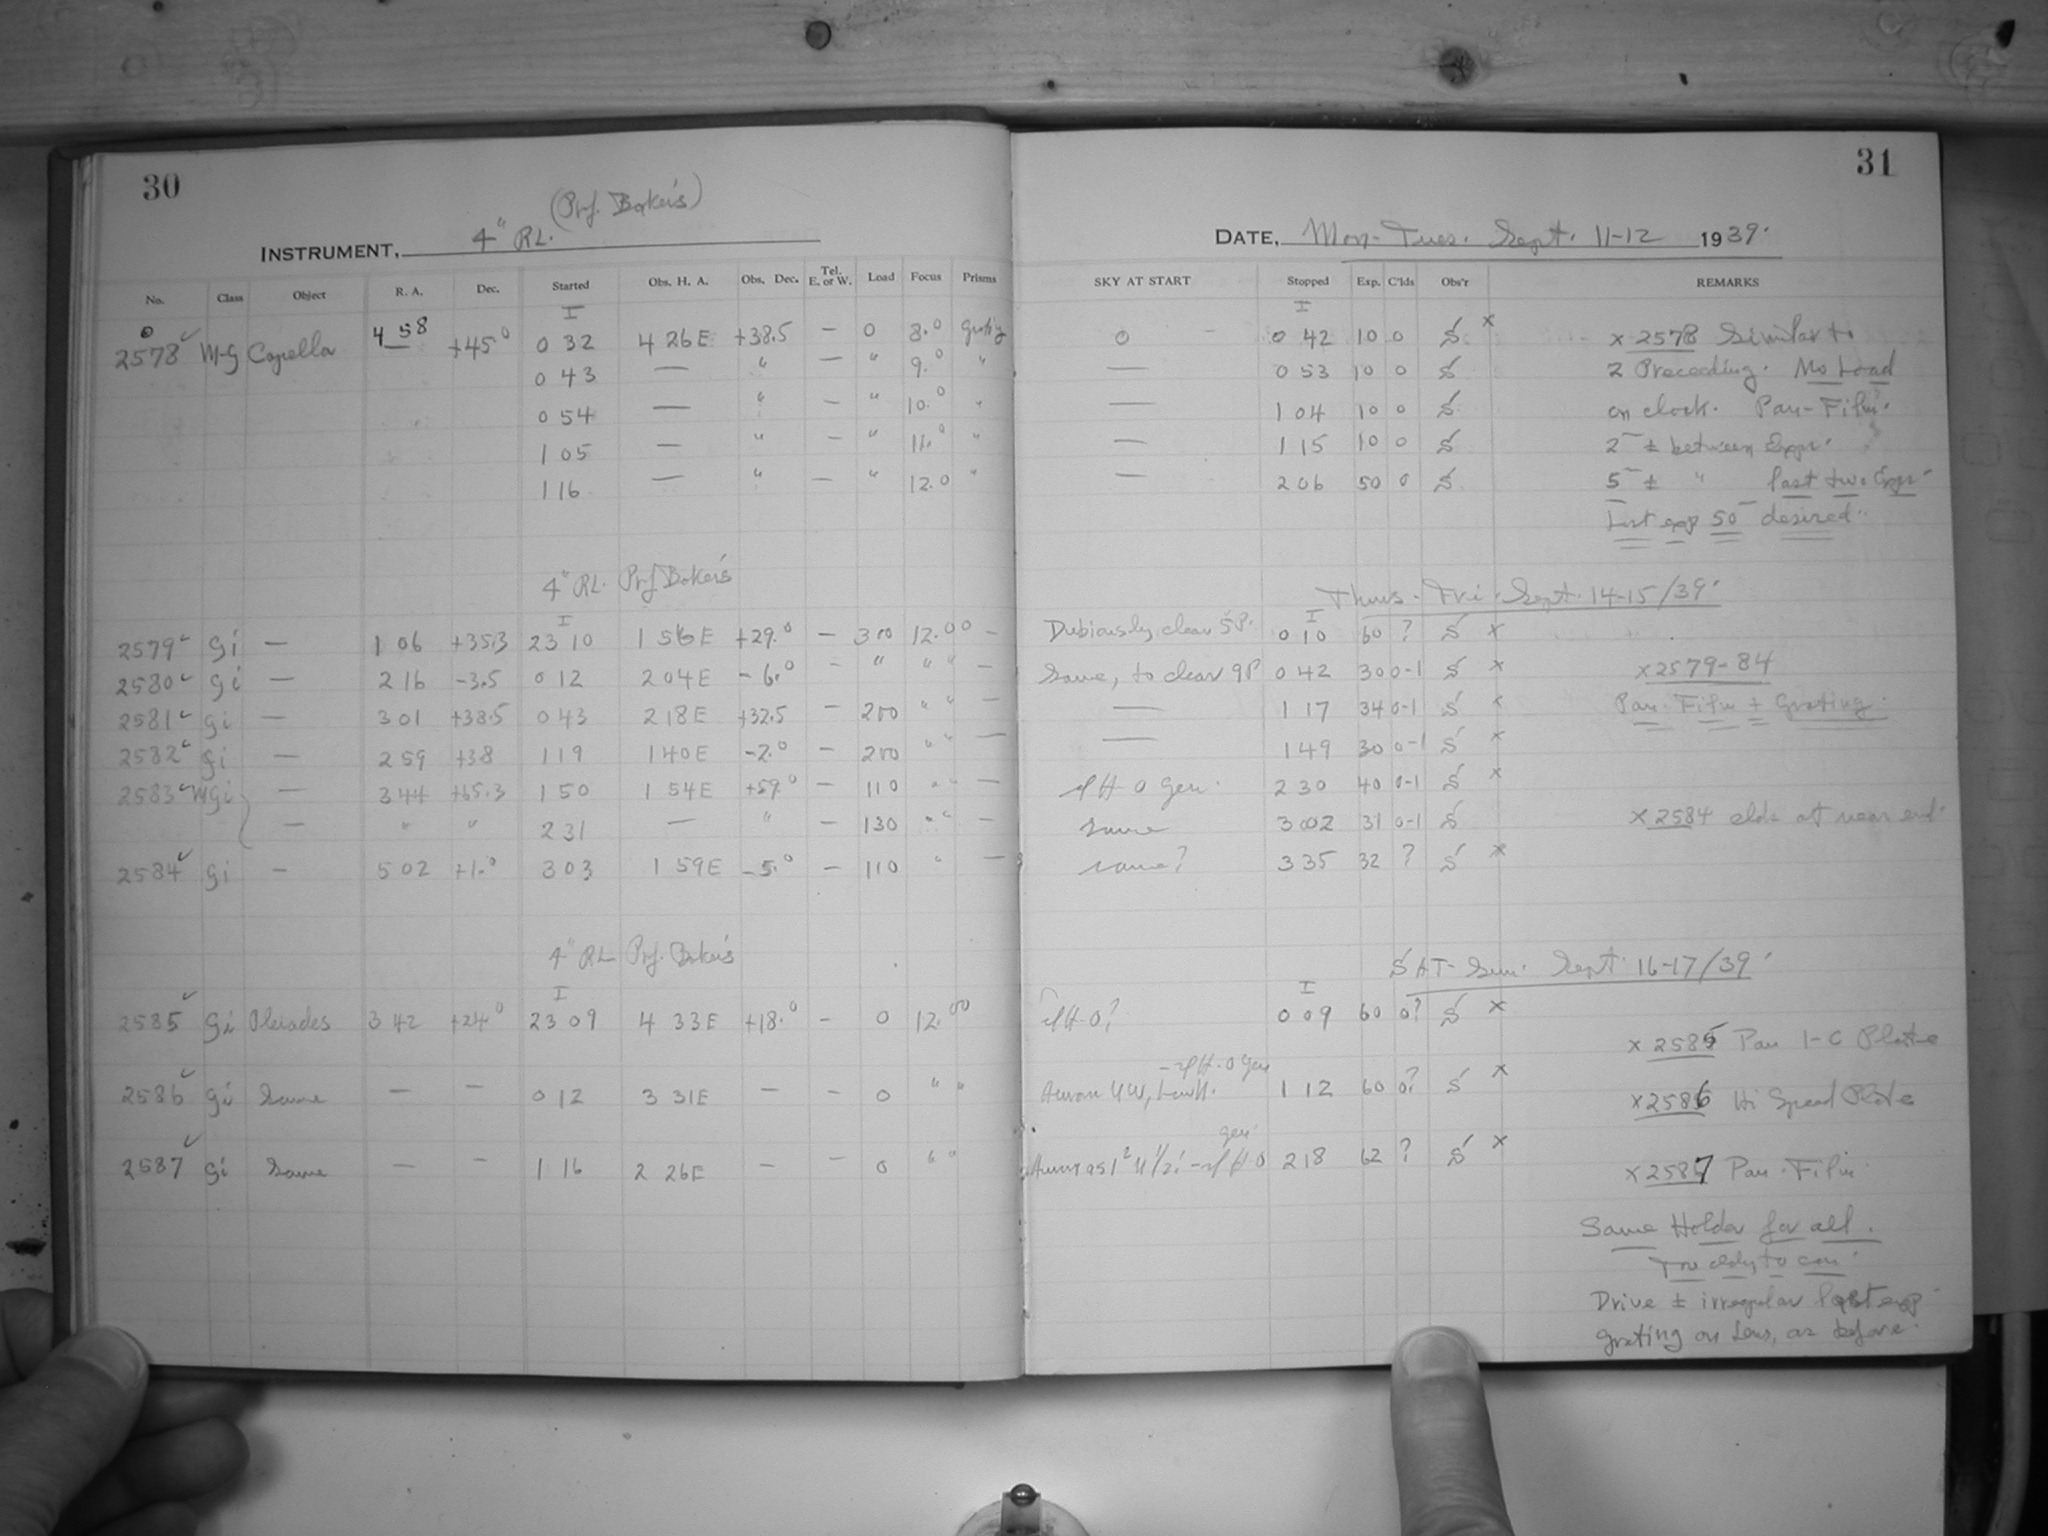 30
(Prof. Boker's)
INSTRUMENT, 4" RL.
No. Class Object R. A. Dec. Started Obs. H. A. Obs. Dec. Tel. E. or W. Load Focus Prisms
I
2578 ✓ M-G Capella 4 58 +45° 0 32 4 26 E +38.5 — 0 8.0 Grating
0 43 — " — " 9.0 "
0 54 — " — " 10.0 "
1 05 — " — " 11.0 "
1 16 — " — " 12.0 "
4" RL. Prof Boker's
I
2579 ✓ Gi — 1 06 +35.3 23 10 1 56 E +29.° — 300 12.00 —
2580 ✓ Gi — 2 16 -3.5 0 12 2 04 E -6.° — " " " —
2581 ✓ Gi — 3 01 +38.5 0 43 2 18 E +32.5 — 200 " " —
2582 ✓ Gi — 2 59 +3.8 1 19 1 40 E -2.° — 200 " " —
2583 ✓ MGi — 3 44 +65.3 1 50 1 54 E +59.° — 110 " " —
— " " 2 31 — " — 130 " " —
2584 ✓ Gi — 5 02 +1.° 3 03 1 59 E -5.° — 110 " —
4" RL Prof. Boker's
I
2585 ✓ Gi Pleiades 3 42 +24° 23 09 4 33 E +18.° — 0 12.00
2586 ✓ Gi Same — — 0 12 3 31 E — — 0 " "
2587 ✓ Gi Same — — 1 16 2 26 E — — 0 " "
31
DATE, Mon-Tues. Sept. 11-12 1939.
SKY AT START Stopped Exp. C'lds Obs'r REMARKS
I
0 0 42 10 0 S x x 2578 Similar to
— 0 53 10 0 S 2 Preceeding. No Load
— 1 04 10 0 S on clock. Pan-Film.
— 1 15 10 0 S 2 ± between Exps.
— 2 06 50 0 S 5 ± " last two Exps
Last exp 50 desired
Thurs. Fri. Sept. 14-15/39.
I
Dubiously clear 5P. 0 10 60 ? S x
Same, to clear 9P 0 42 30 0-1 S x x 2579-84
— 1 17 34 0-1 S x Pan. Film + Grating.
— 1 49 30 0-1 S x
H-0 gen. 2 30 40 0-1 S x
same 3 02 31 0-1 S x 2584 clds at near end.
same? 3 35 32 ? S x
SAT-Sun. Sept. 16-17/39.
I
H-0? 0 09 60 0? S x
x 2585 Pan 1-C Plate
H-0 gen
1 12 60 0? S x
x 2586 Hi Speed Plate
gen.
H-0 2 18 62 ? S x
x 2587 Pan. Film
Same Holder for all.
Too cldy to con.
Drive ± irregular last exp
Grating on Lens, as before.